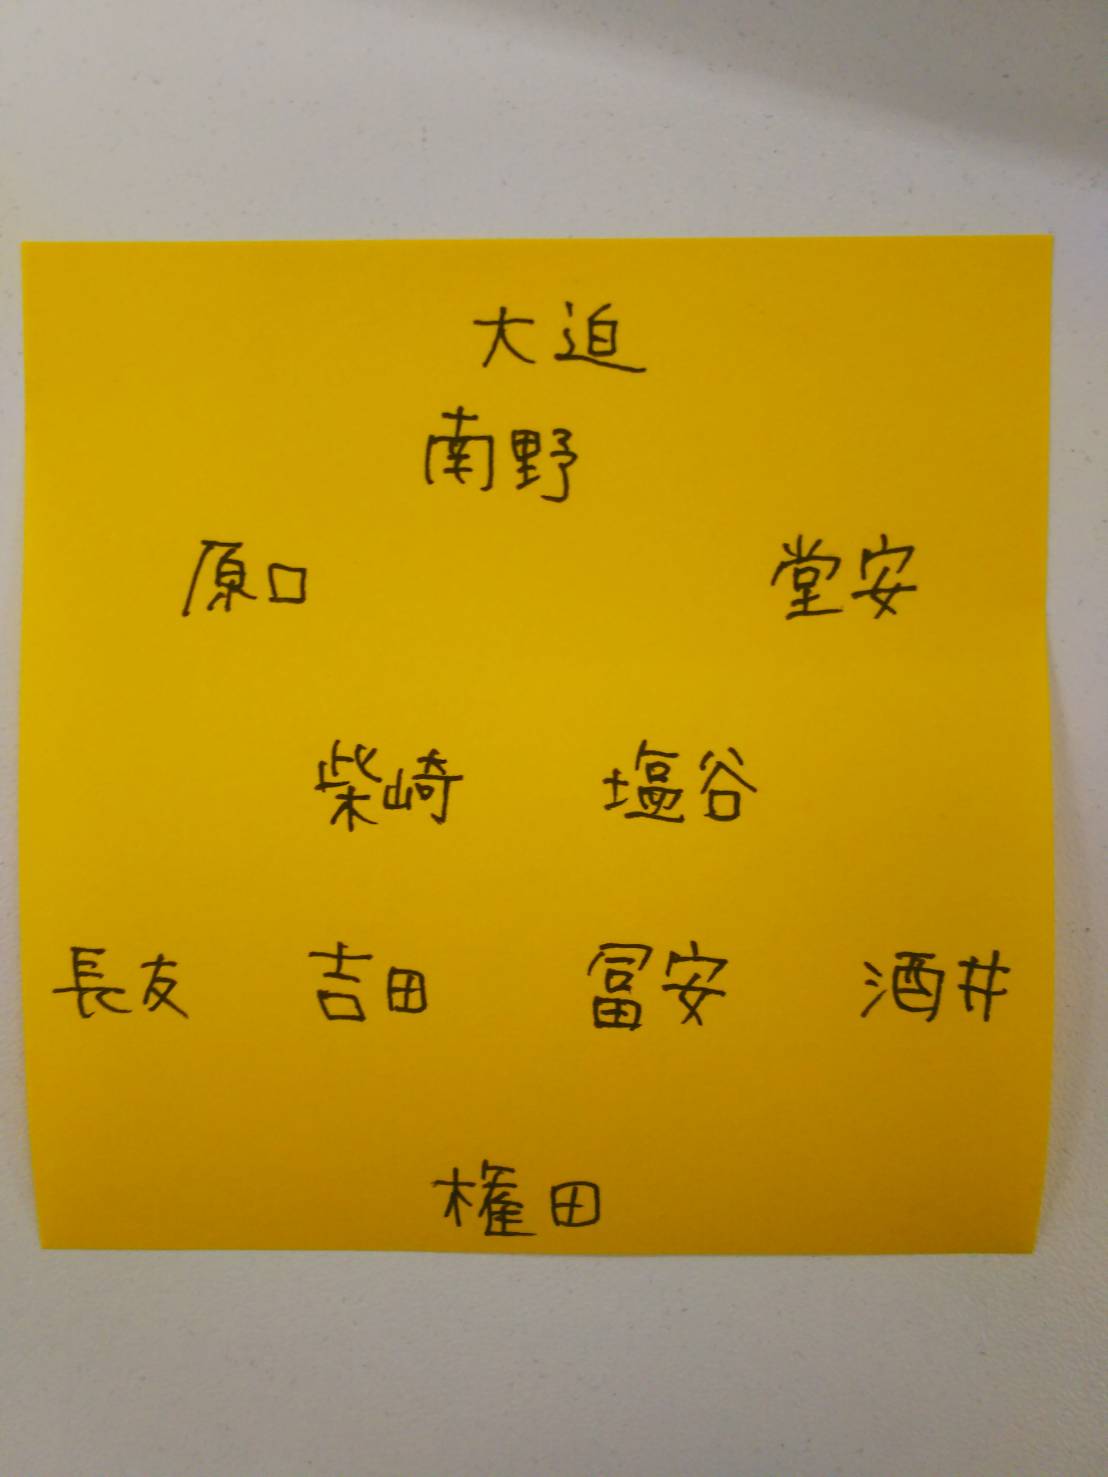 大迫
南野
原口 堂安
柴崎 塩谷
長友 吉田 冨安 酒井
権田